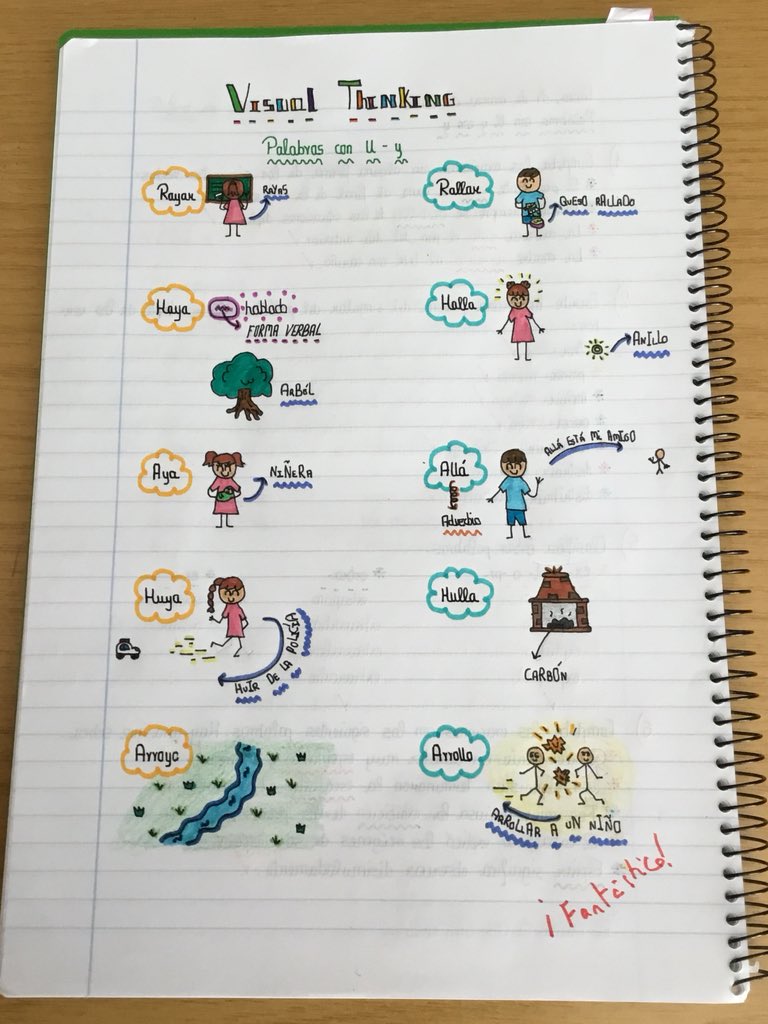 Visual Thinking
Palabras con ll - y
Rayar
RAYAS
Rallar
QUESO RALLADO
Haya
hablado
FORMA VERBAL
ARBÓL
Halla
ANILLO
Aya
NIÑERA
Allá
Adverbio
ALLÁ ESTÁ MI AMIGO
Huya
HUIR DE LA POLICÍA
Hulla
CARBÓN
Arroyo
Arrollo
ARROLLAR A UN NIÑO
¡Fantástico!